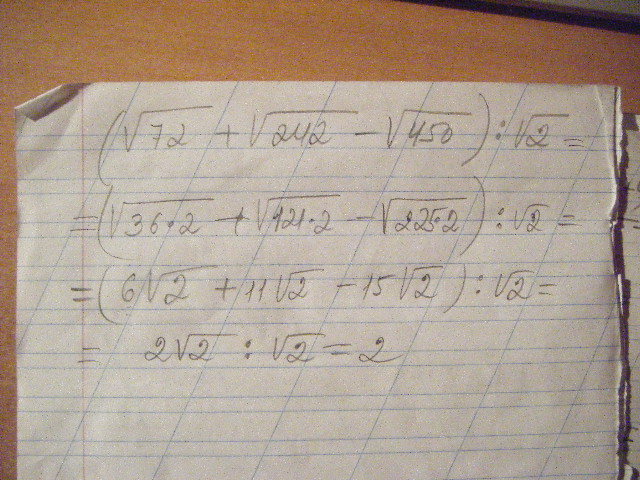 (√72 + √242 − √450) : √2 =
= (√36·2 + √121·2 − √225·2) : √2 =
= (6√2 + 11√2 − 15√2) : √2 =
= 2√2 : √2 = 2